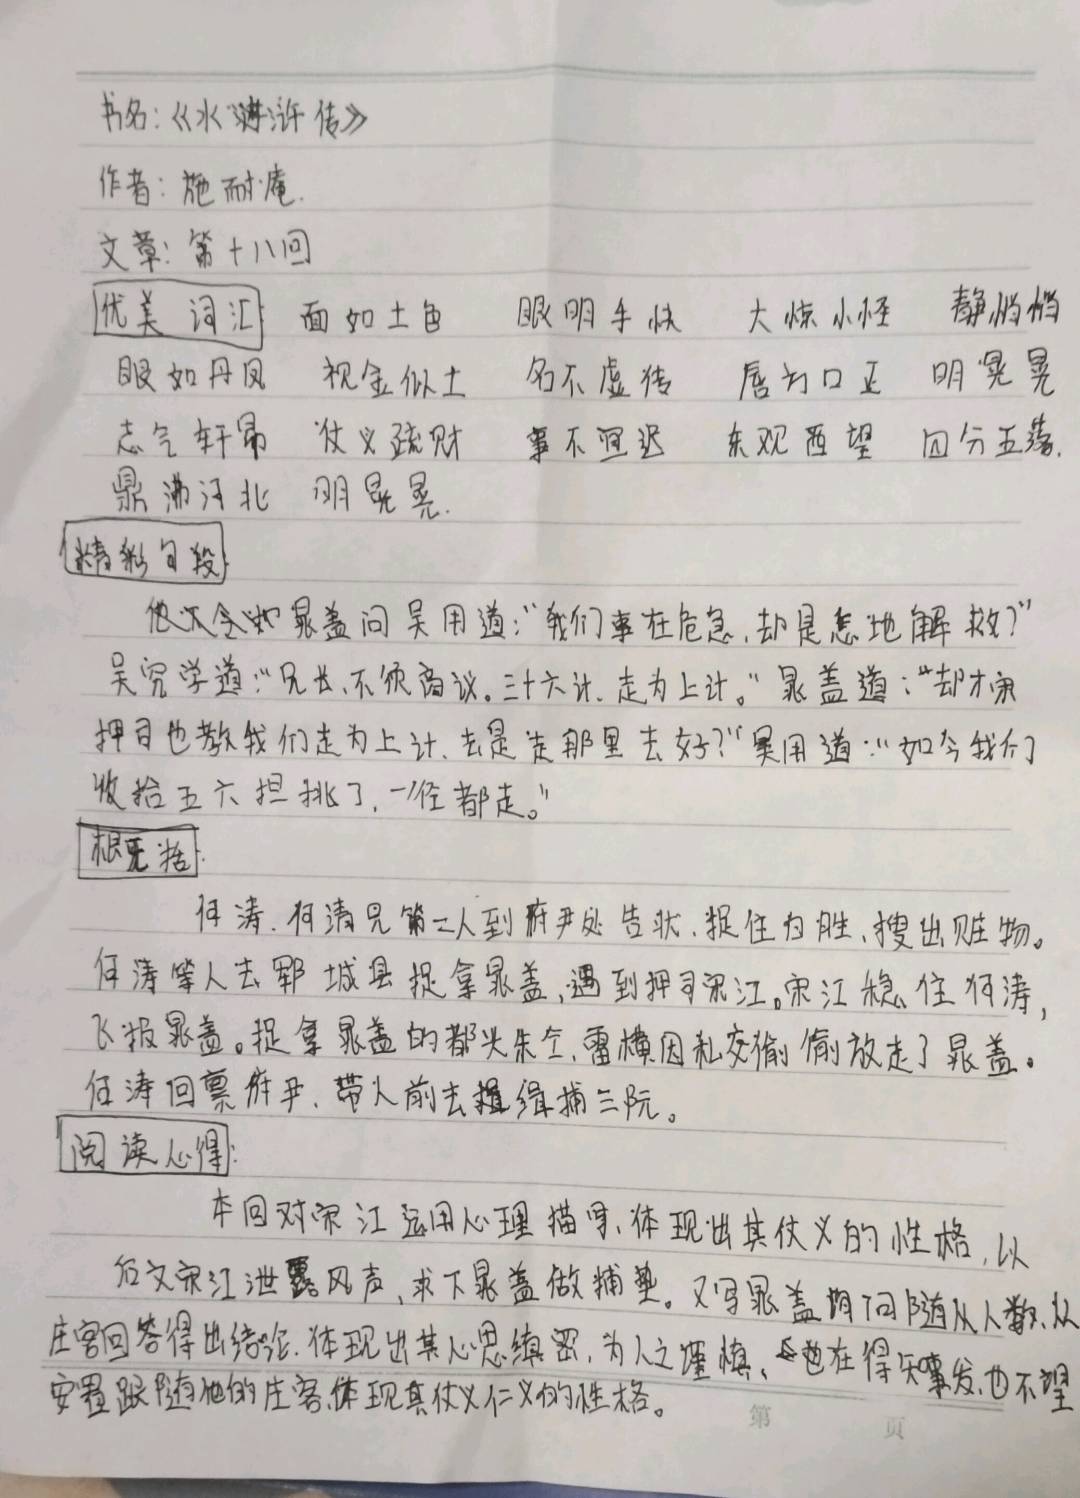 书名：《水浒传》
作者：施耐庵.
文章：第十八回
优美词汇： 面如土色 眼明手快 大惊小怪 静悄悄
眼如丹凤 视金似土 名不虚传 唇方口正 明晃晃
志气轩昂 仗义疏财 事不宜迟 东观西望 四分五落.
鼎沸河北 明晃晃.
精彩句段：
晁盖问吴用道："我们事在危急，却是怎地解救？"
吴究学道："兄长，不须商议。三十六计，走为上计。"晁盖道："却才宋
押司也教我们走为上计，去是走那里去好？"吴用道："如今我们
收拾五六担挑了，一径都走。"
概括：
何涛、何清兄第二人到府尹处告状，捉住白胜，搜出赃物。
何涛等人去郓城县捉拿晁盖，遇到押司宋江。宋江稳住何涛，
飞报晁盖。捉拿晁盖的都头朱仝、雷横因私交偷偷放走了晁盖。
何涛回禀府尹，带人前去缉捕三阮。
阅读心得：
本回对宋江运用心理描写，体现出其仗义的性格，以
后文宋江泄露风声，求下晁盖做捕垫。又写晁盖询问随从人数，从
庄客回答得出结论，体现出其心思缜密，为人之谨慎，他在得知事发，也不望
安置跟随他的庄客，体现其仗义仁义的性格。
第 页